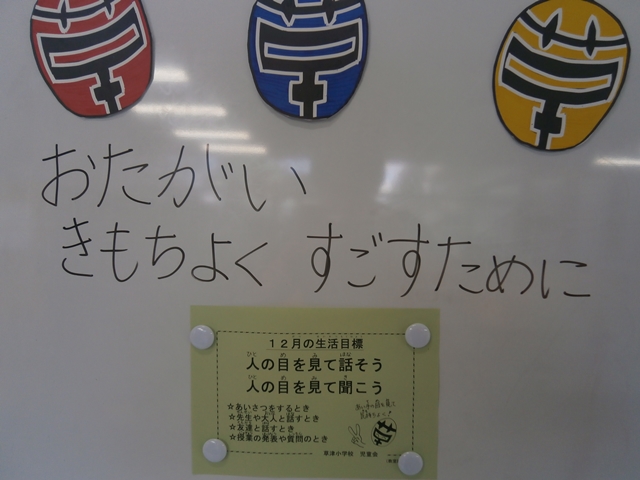 おたがい
きもちよく すごすために
12月の生活目標
人の目を見て話そう
人の目を見て聞こう
☆あいさつをするとき
☆先生や大人と話すとき
☆友達と話すとき
☆授業の発表や質問のとき
草津小学校 児童会